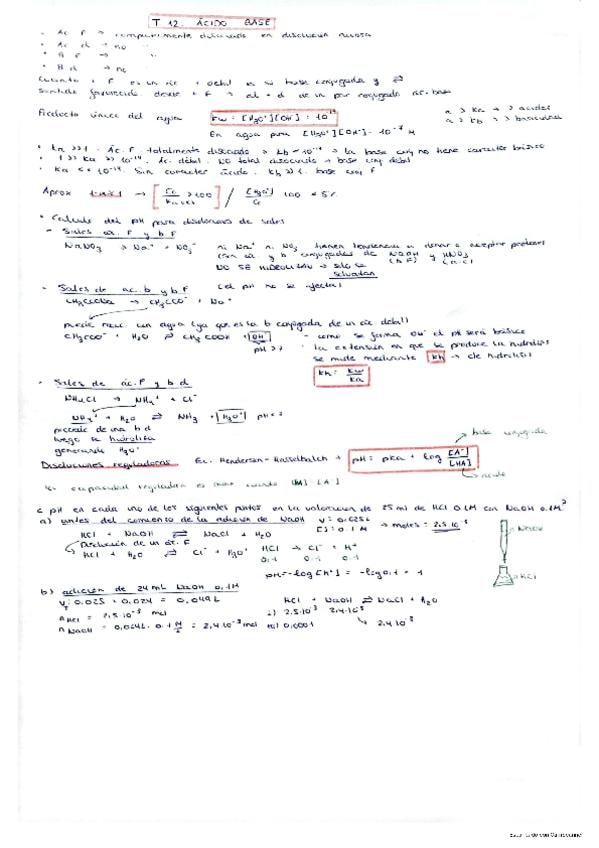 T 12. ÁCIDO BASE
· Ác F → completamente disociado en disolución acuosa
· Ác d → no "
· B F → "
· B d → no
Cuanto + F es un ác + débil es su base conjugada y ⇌
Sentido favorecido desde + F → al + d de un par conjugado ác. base
Producto iónico del agua Kw = [H3O+][OH-] = 10-14
En agua pura [H3O+][OH-] = 10-7 M
> Ka → > acidez
> Kb → > basicidad
· Ka >> 1. Ác. F. totalmente disociado → Kb < 10-14 → la base conj no tiene carácter básico
· 1 >> Ka >> 10-14. Ác. débil. NO total disociado → base conj débil
· Ka << 10-14. Sin carácter ácido. Kb >> 1. base conj F
Aprox → > 100 / [H3O+] 100 < 5%
* Calculo del pH para disoluciones de sales
- Sales ác. F y b F
NaNO3 → Na+ + NO3- ni Na+ ni NO3- tienen tendencia a donar o aceptar protones
son ác y b conjugadas de NaOH (b F) y HNO3 (ác)
NO SE HIDROLIZAN → sólo se solvatan
(el pH no se afecta)
- Sales de ac. b y b F
CH3COONa → CH3COO- + Na+
puede reac con agua (ya que es la b conjugada de un ác débil)
CH3COO- + H2O ⇌ CH3COOH + OH- pH > 7
- como se forma OH- el pH será básico
· la extensión en que se produce la hidrólisis
se mide mediante Kh → cte hidrólisis
Kh = Kw / Ka
- Sales de ác. F y b d
NH4Cl → NH4+ + Cl-
NH4+ + H2O ⇌ NH3 + H3O+ pH < 7
procede de una b d
luego se hidroliza
generando H3O+
Disoluciones reguladoras Ec. Henderson-Hasselbalch → pH = pKa + log [A-] / [HA]
base conjugada
ácido
capacidad reguladora es max cuando [HA] = [A-]
¿ pH en cada uno de los siguientes puntos en la valoración de 25 ml de HCl 0.1M con NaOH 0.1M?
a) antes del comienzo de la adición de NaOH V = 0.025 L
[ ] = 0.1 M → moles = 2.5·10-3
HCl + NaOH ⇌ NaCl + H2O
→ Disolución de un ác. F
HCl + H2O ⇌ Cl- + H3O+ HCl → Cl- + H+
0.1 0.1 0.1
pH = -log[H+] = -log 0.1 = 1
NaOH
HCl
b) adición de 24 ml NaOH 0.1M
VT = 0.025 + 0.024 = 0.049 L HCl + NaOH ⇌ NaCl + H2O
n HCl = 2,5·10-3 mol i) 2,5·10-3 2,4·10-3
n NaOH = 0,024L · 0.1 = 2,4·10-3 mol 0,0001 2,4·10-3